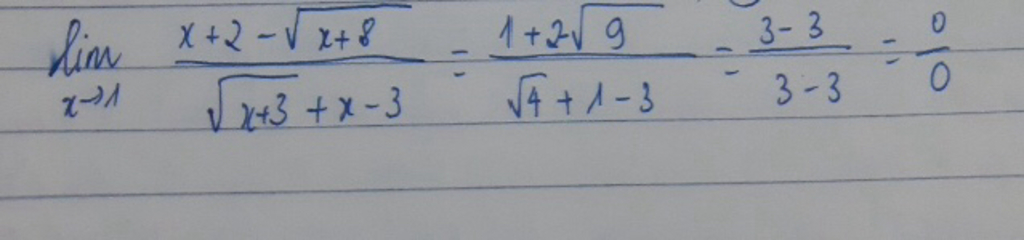 lim x→1 (x+2-√(x+8))/(√(x+3)+x-3) = (1+2√9)/(√4+1-3) = (3-3)/(3-3) = 0/0